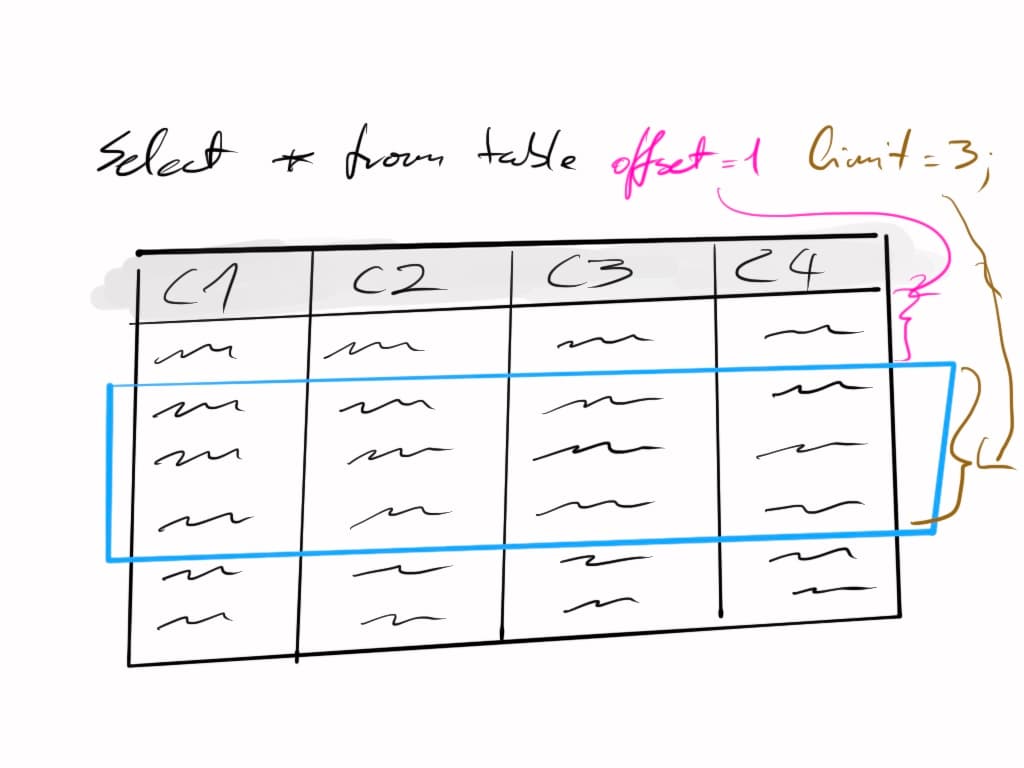 Select * from table offset=1 limit=3;
C1 C2 C3 C4